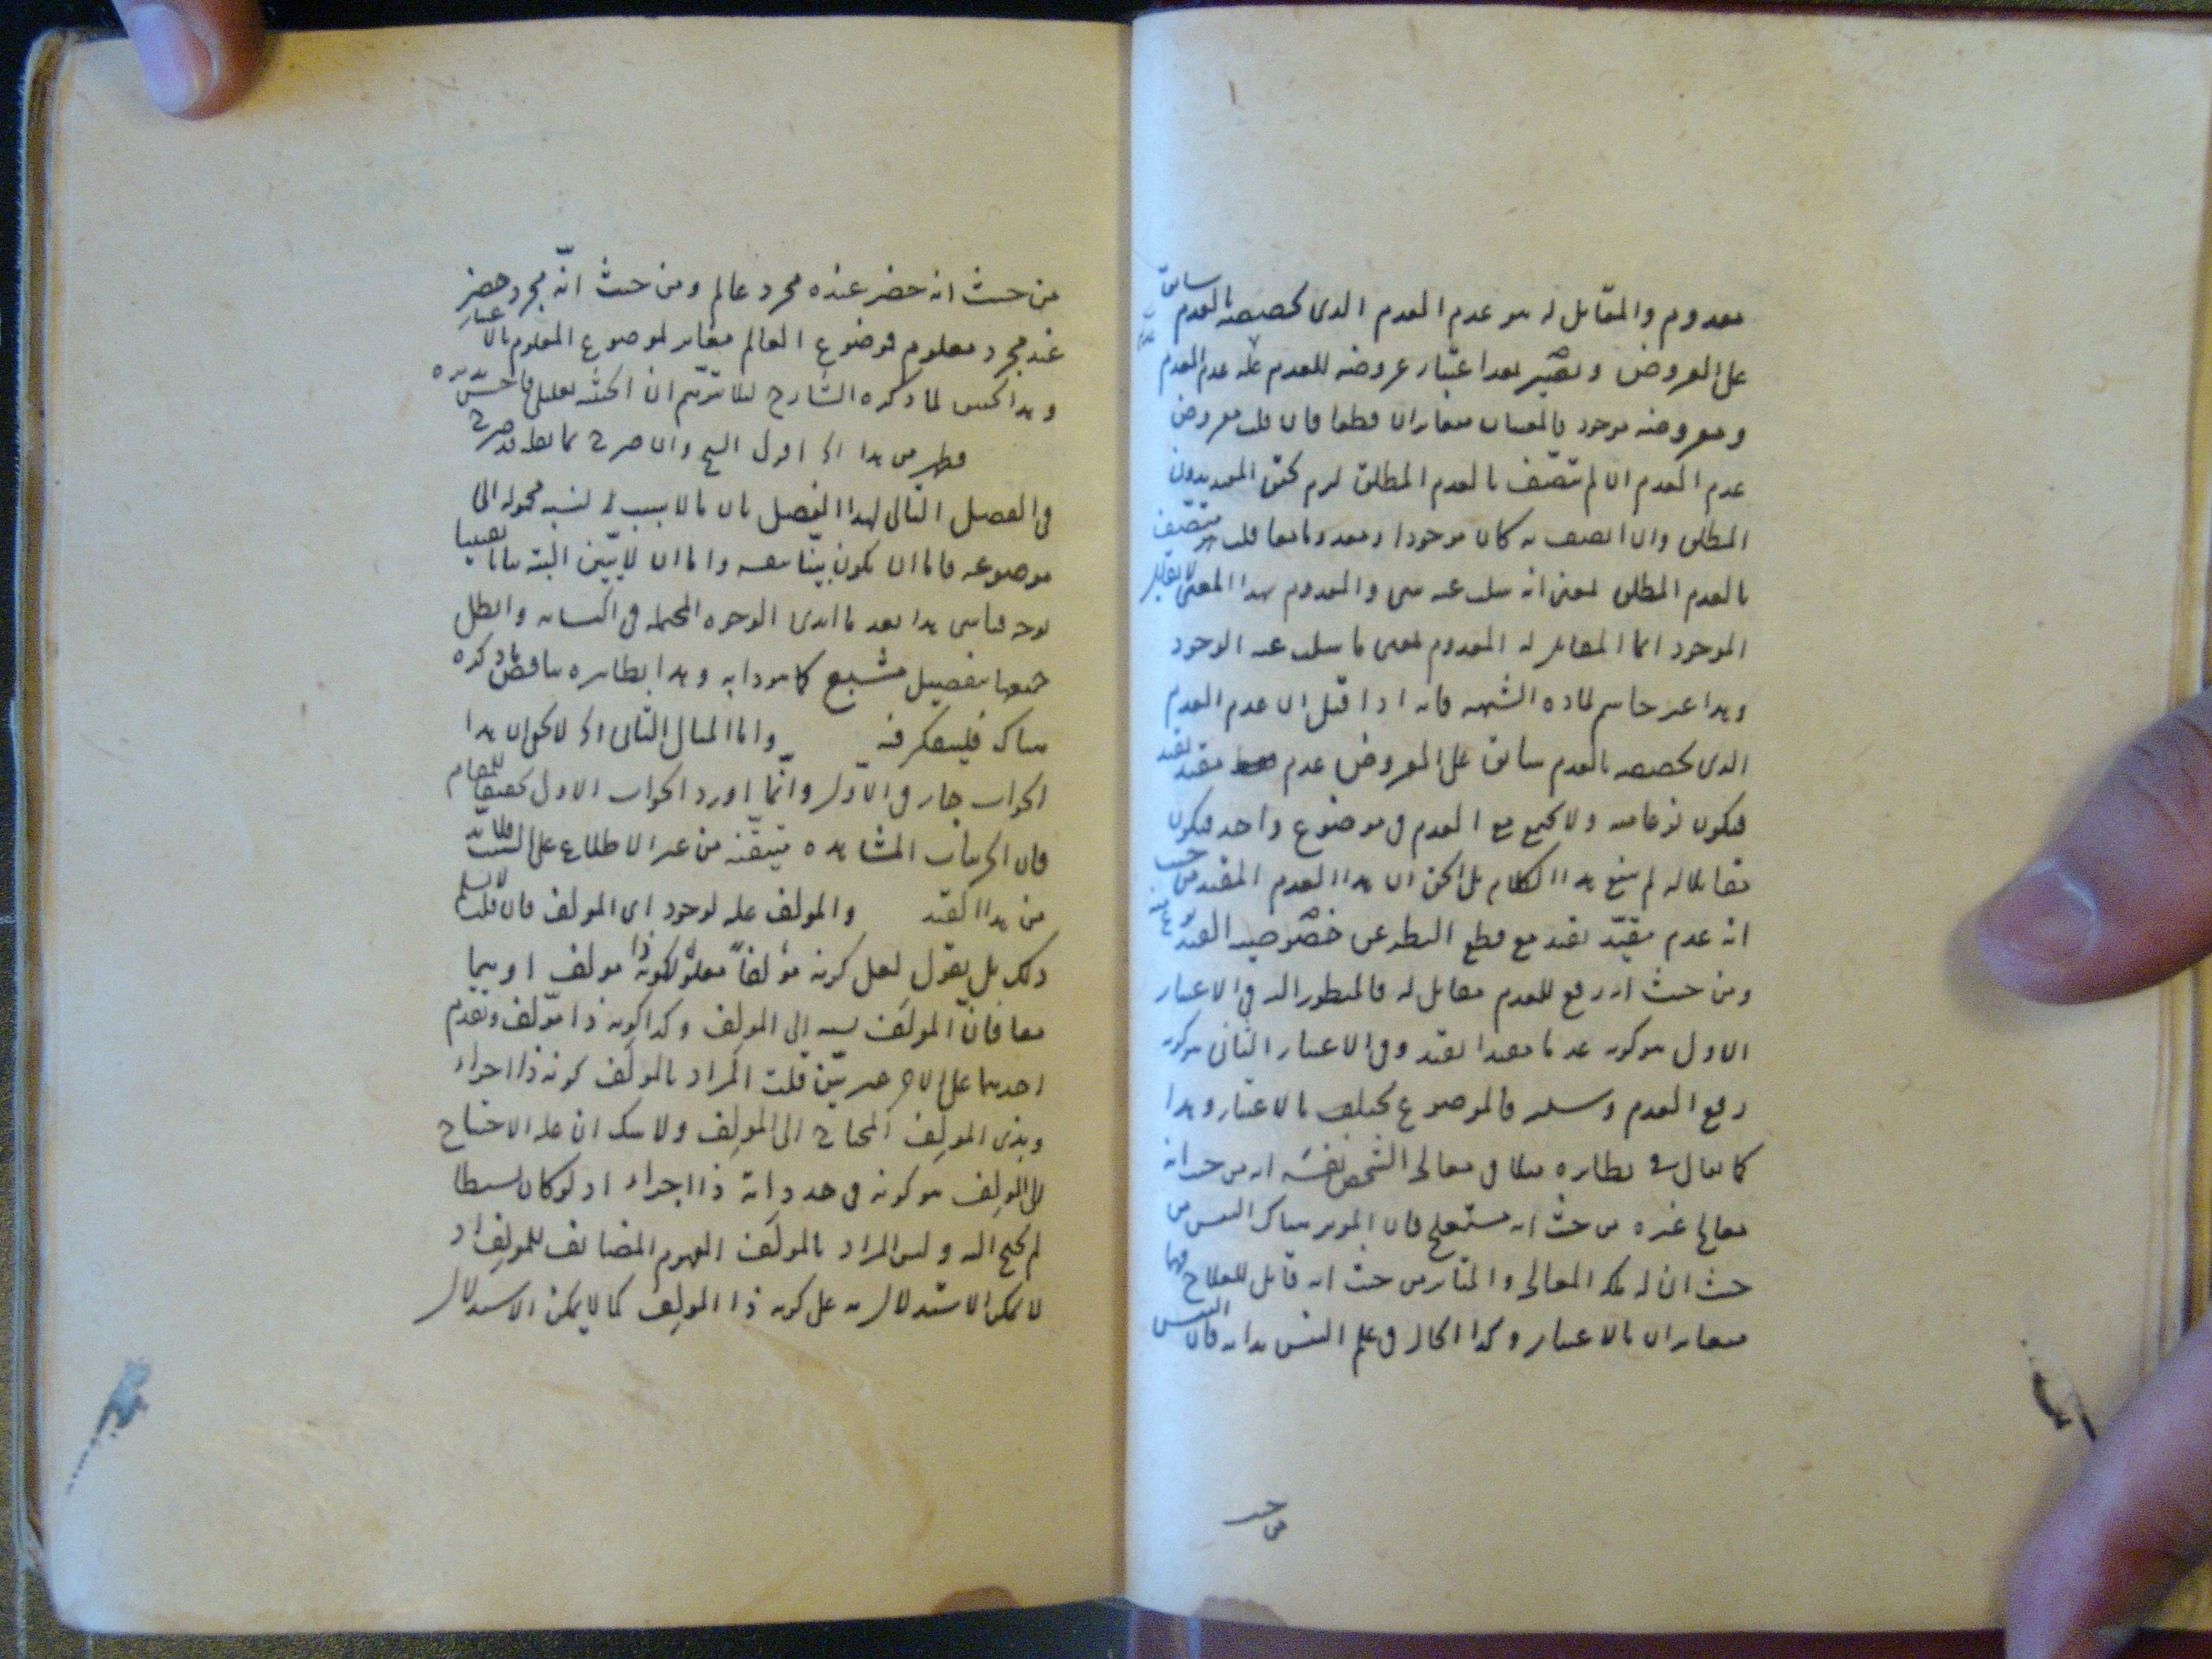 معدوم والمقابل له هو عدم العدم الذى تخصيصه بالعدم سابق
على العروض ويصير بعد اعتبار عروضه للعدم عدم العدم
ومعروضه موجود فالمعنيان متغايران قطعا فان قلت معروض
عدم العدم ان لم تتصف بالعدم المطلق لزم تحقق المقيد بدون
المطلق وان اتصف به كان موجودا ومعدوما معا قلت هو متصف
بالعدم المطلق بمعنى انه سلب عنه شى والمعدوم بهذا المعنى لا يقابل
الموجود انما المقابل له المعدوم بمعنى ما سلب عنه الوجود
وهذا غير حاسم لمادة الشبهه فانه اذا قيل ان عدم العدم
الذى تخصيصه بالعدم سابق على العروض عدم مقيد بقيد
فيكون نوعا منه ولا يجتمع مع العدم فى موضوع واحد فيكون
مقابلا له لم ينفع هذا الكلام بل الحق ان هذا العدم المقيد من حيث
انه عدم مقيد بقيد مع قطع النظر عن خصوصية القيد
ومن حيث انه رفع للعدم مقابل له فالمنظور اليه فى الاعتبار
الاول هو كونه عدما مقيدا بقيد وفى الاعتبار الثانى هو كونه
رفع العدم وسلبه فالموضوع يختلف بالاعتبار وهذا
كما يقال فى نظايره مثلا فى معالجة الشخص نفسه انه من حيث انه
معالج غيره من حيث انه مستعلج فان الموثر هناك النفس من
حيث ان له ملكة المعالجة والمتاثر من حيث انه قابل للعلاج فهما
متغايران بالاعتبار وكذا الحال فى علم النفس بذاته فان النفس
من حيث
من حيث انه حضر عنده مجرد عالم ومن حيث انّه مجرد حضر
عند مجرد معلوم فموضوع العالم مغاير لموضوع المعلوم بالاعتبار
وهذا تحقيق لما ذكره الشارح لئلا يتوهم ان الحيثية تعليل
فظهر من هذا الخ اقول الشيخ وان صرح بما نقله قد صرح
فى الفصل التالى لهذا الفصل بان ما لا سبب لنسبة محموله الى
موضوعه فاما ان يكون بيّنا بنفسه واما ان لا يبين البته بيانا يقينيا
بوجه قياسى هذا بعد ما ابدى الوجوه المحتمله فى اكتسابه وابطل
جميعها بتفصيل مشبع كما هو دابه وهذا بظاهره يناقض ما ذكره
هناك فليتفكر فيه واما المثال الثانى الخ لا يخفى ان هذا
الجواب جار فى الاول وانّما اورد الجواب الاول تحقيقا للمقام
فان الجزئيات المشاهده متيقنه من غير الاطلاع على السبب فلا بد
من هذا القيد والمولف علة لوجود اى المولف فان قلت لا نسلم
ذلك بل يقول لعل كونه مؤلفاً معلول لكونه ذا مولف او هما
معا فانّ المولَف نسبة الى المولِف وكذا كونه ذا مؤلف وتقدم
احدهما على الاخر غير بيّن قلت المراد بالمولَف كونه ذا اجزاء
وبذى المولِف المحتاج الى المولِف ولا شك ان علة الاحتياج
الى المولِف هو كونه فى حد ذاته ذا اجزاء اذ لو كان بسيطا
لم يحتج اليه وليس المراد بالمولَف المفهوم المضايف للمولِف اذ
لا يمكن الاستدلال به على كونه ذا المولِف كما لا يمكن الاستدلال